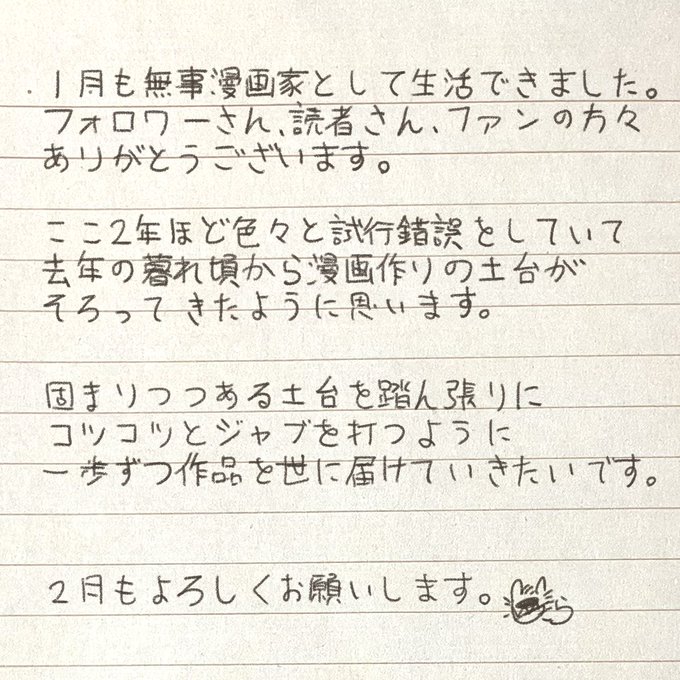 1月も無事漫画家として生活できました。
フォロワーさん、読者さん、ファンの方々
ありがとうございます。
ここ2年ほど色々と試行錯誤をしていて
去年の暮れ頃から漫画作りの土台が
そろってきたように思います。
固まりつつある土台を踏ん張りに
コツコツとジャブを打つように
一歩ずつ作品を世に届けていきたいです。
2月もよろしくお願いします。